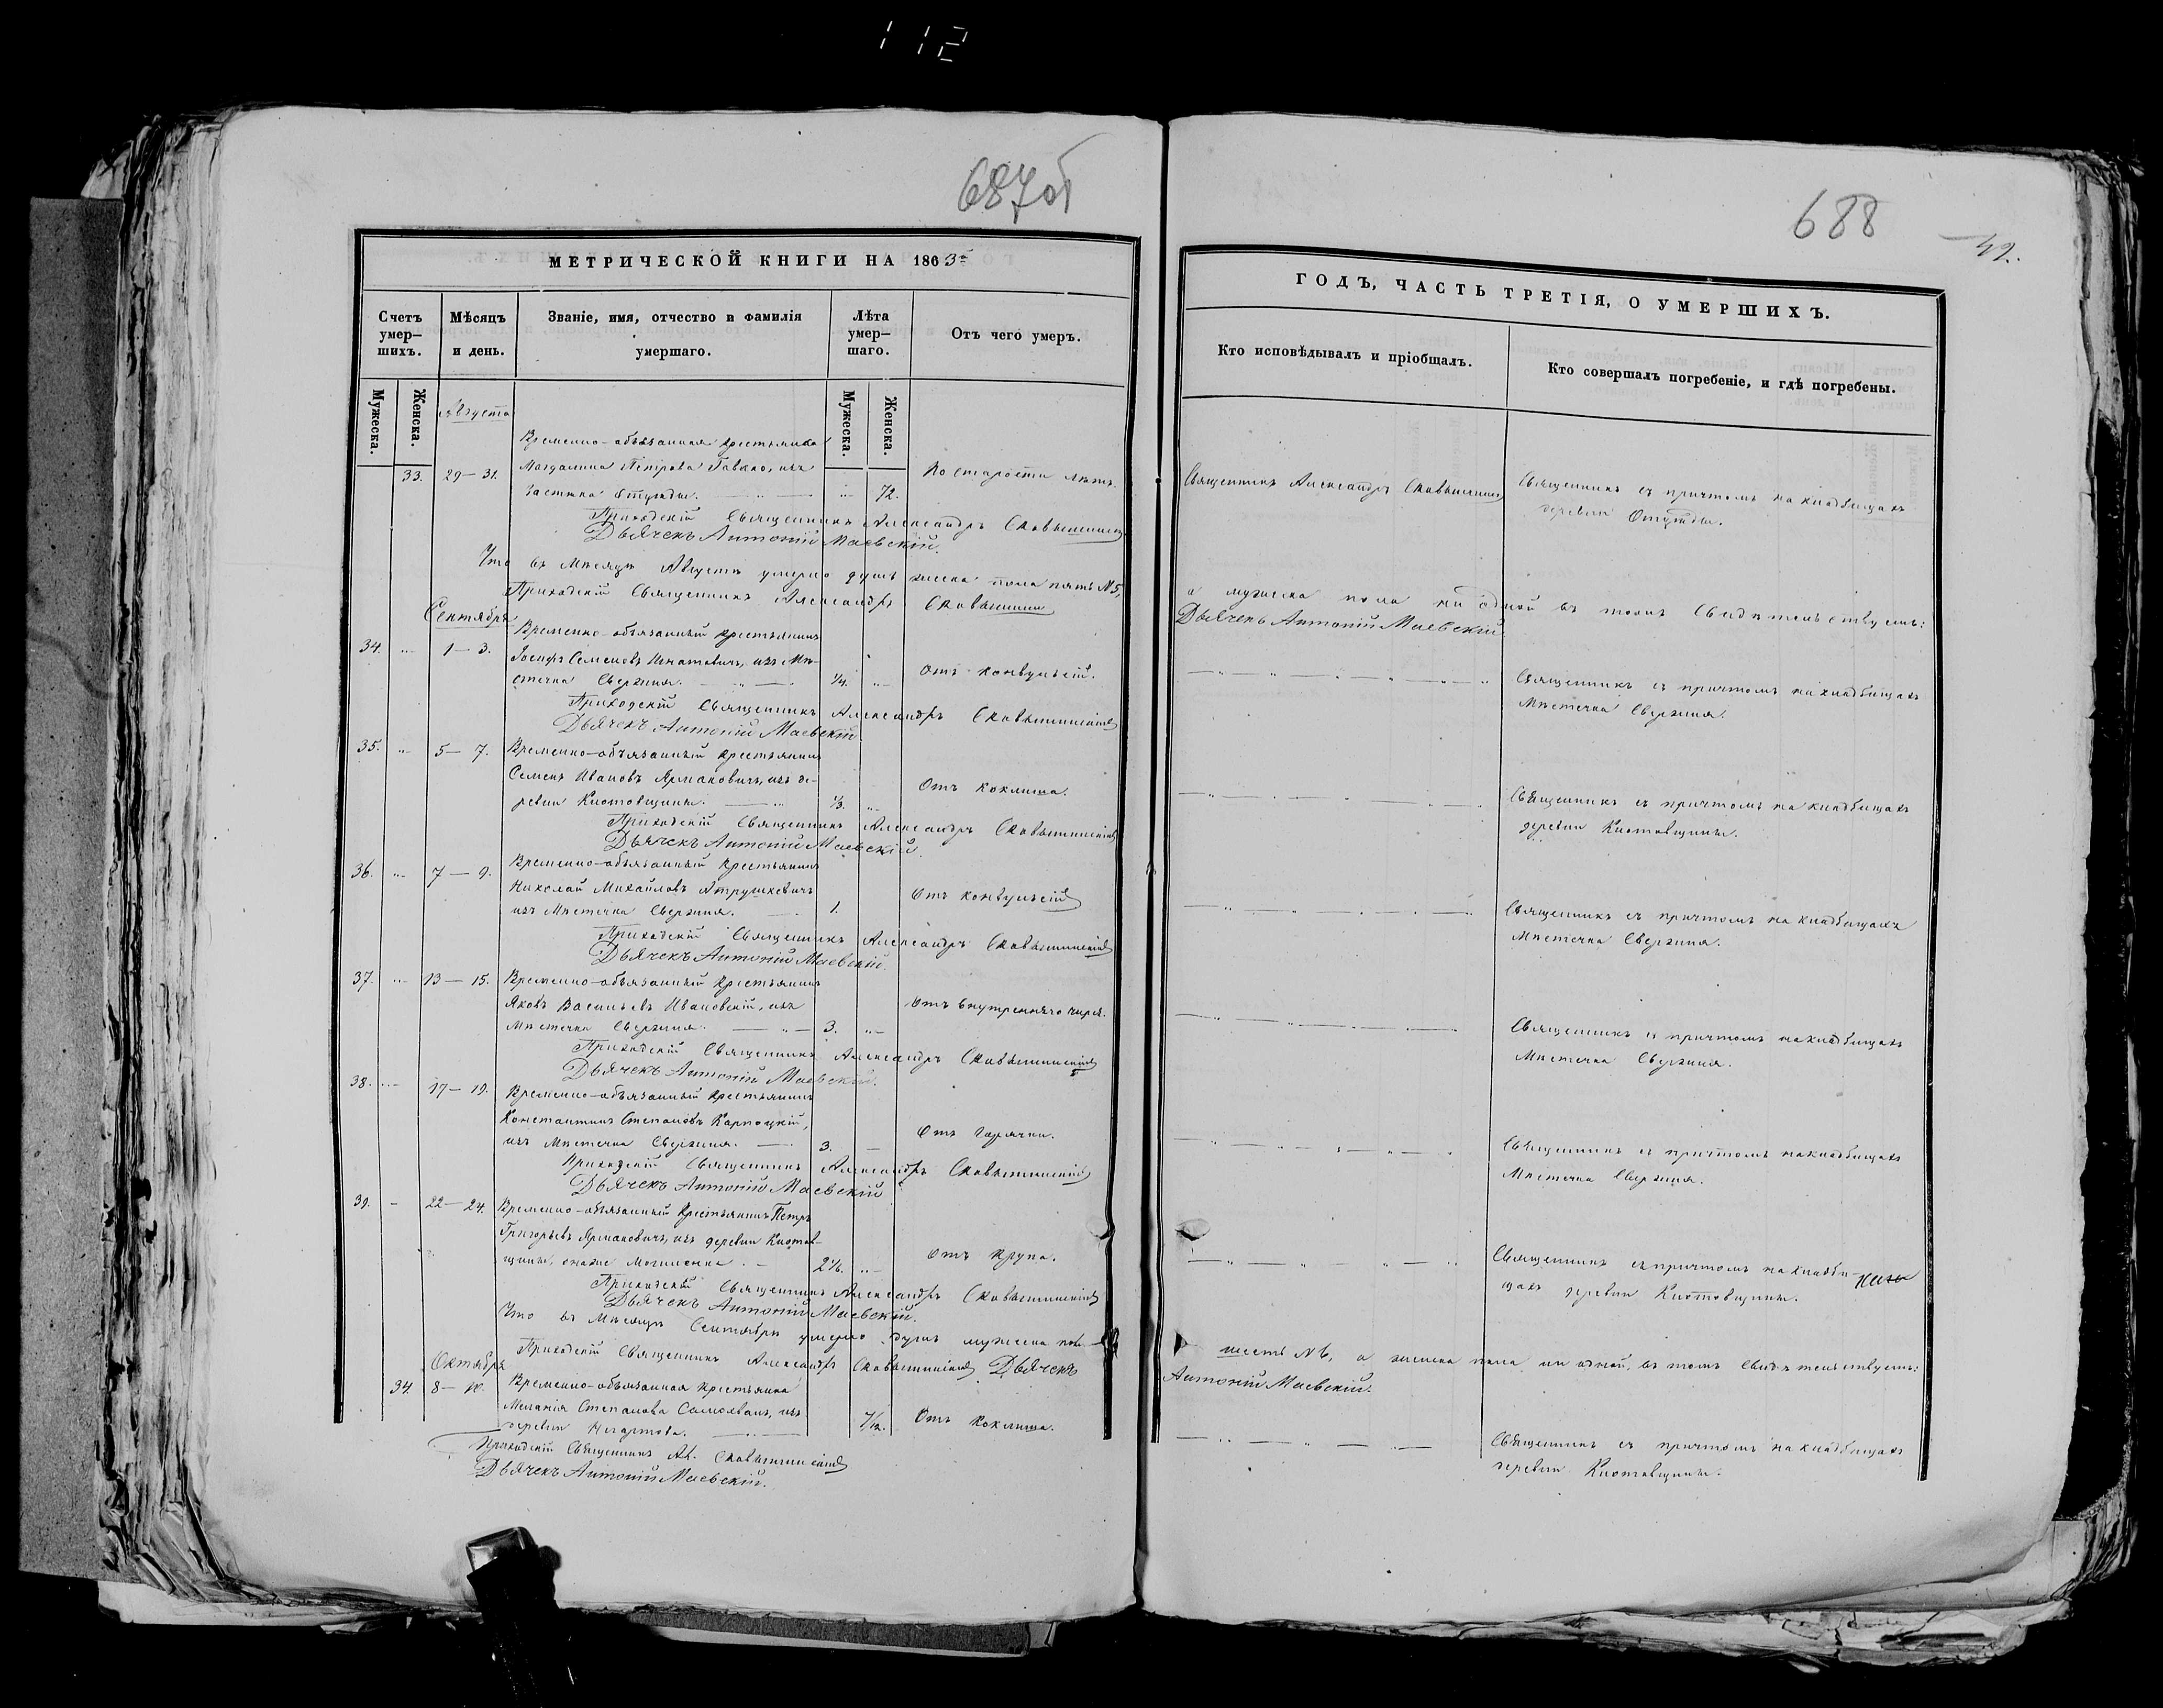 112
687об
МЕТРИЧЕСКОЙ КНИГИ НА 1863й
Счетъ умер-
шихъ.
Мѣсяцъ
и день.
Званіе, имя, отчество и фамилія
умершаго.
Лѣта
умер-
шаго.
Отъ чего умеръ.
Мужеска.
Женска.
Мужеска.
Женска.
Августа
Временно-обязанная крестьянка
33. 29-31. Магдалина Петрова Гавкло, изъ По старости лѣтъ.
72.
Приходскій Священникъ Александръ
Дьячекъ Антоній Маевскій.
Что въ Мѣсяцѣ Августѣ умерло душъ женска пола пять №5,
Приходскій Священникъ Александръ
Сентября
Временно-обязанный крестьянинъ
34. 1-3. Іосифъ Семеновъ Игнатовичъ, изъ Мѣ-
стечка Свержня. 1/4. Отъ конвульсій.
Приходскій Священникъ Александръ
Дьячекъ Антоній Маевскій
35. 5-7. Временно-обязанный крестьянинъ
Семенъ Ивановъ Ярмаковичъ, изъ де-
ревни Кнотовщины. 1/3. Отъ коклюша.
Приходскій Священникъ Александръ
Дьячекъ Антоній Маевскій.
36. 7-9. Временно-обязанный крестьянинъ
Николай Михайловъ Атрушкевичъ
изъ Мѣстечка Свержня. 1. Отъ конвульсій
Приходскій Священникъ Александръ
Дьячекъ Антоній Маевскій.
37. 13-15. Временно-обязанный крестьянинъ
Яковъ Васильевъ Ивановскій, изъ
Мѣстечка Свержня. 3. Отъ внутренняго чирья.
Приходскій Священникъ Александръ
Дьячекъ Антоній Маевскій.
38. 17-19. Временно-обязанный крестьянинъ
Константинъ Степановъ Карпоцкій,
изъ Мѣстечка Свержня. 3. Отъ горячки.
Приходскій Священникъ Александръ
Дьячекъ Антоній Маевскій
39. 22-24. Временно-обязанный крестьянинъ Петръ
Григорьевъ Ярмаковичъ, изъ деревни Кнотов-
щины, Отъ крупа.
Приходскій Священникъ Александръ
Дьячекъ Антоній Маевскій.
Что въ Мѣсяцѣ Сентябрѣ умерло душъ мужеска пола
Приходскій Священникъ Александръ Дьячекъ
Октября
34. 8-10. Временно-обязанная крестьянка
Меланія Степанова изъ
деревни 7/12. Отъ коклюша.
Приходскій Священникъ Ал.
Дьячекъ Антоній Маевскій.
688
49.
ГОДЪ, ЧАСТЬ ТРЕТІЯ, О УМЕРШИХЪ.
Кто исповѣдывалъ и пріобщалъ.
Кто совершалъ погребеніе, и гдѣ погребены.
Священникъ Александръ
Священникъ съ причтомъ на кладбищахъ
деревни
а мужеска пола ни одной въ томъ Свидѣтельствуемъ:
Дьячекъ Антоній Маевскій
Священникъ съ причтомъ на кладбищахъ
Мѣстечка Свержня.
Священникъ съ причтомъ на кладбищахъ
деревни Кнотовщины.
Священникъ съ причтомъ на кладбищахъ
Мѣстечка Свержня.
Священникъ съ причтомъ на кладбищахъ
Мѣстечка Свержня.
Священникъ съ причтомъ на кладбищахъ
Мѣстечка Свержня.
Священникъ съ причтомъ на кладби-
щахъ деревни Кнотовщины.
шесть №6, а женска пола ни одной, въ томъ свидѣтельствуемъ:
Антоній Маевскій.
Священникъ съ причтомъ на кладбищахъ
деревни Кнотовщины.